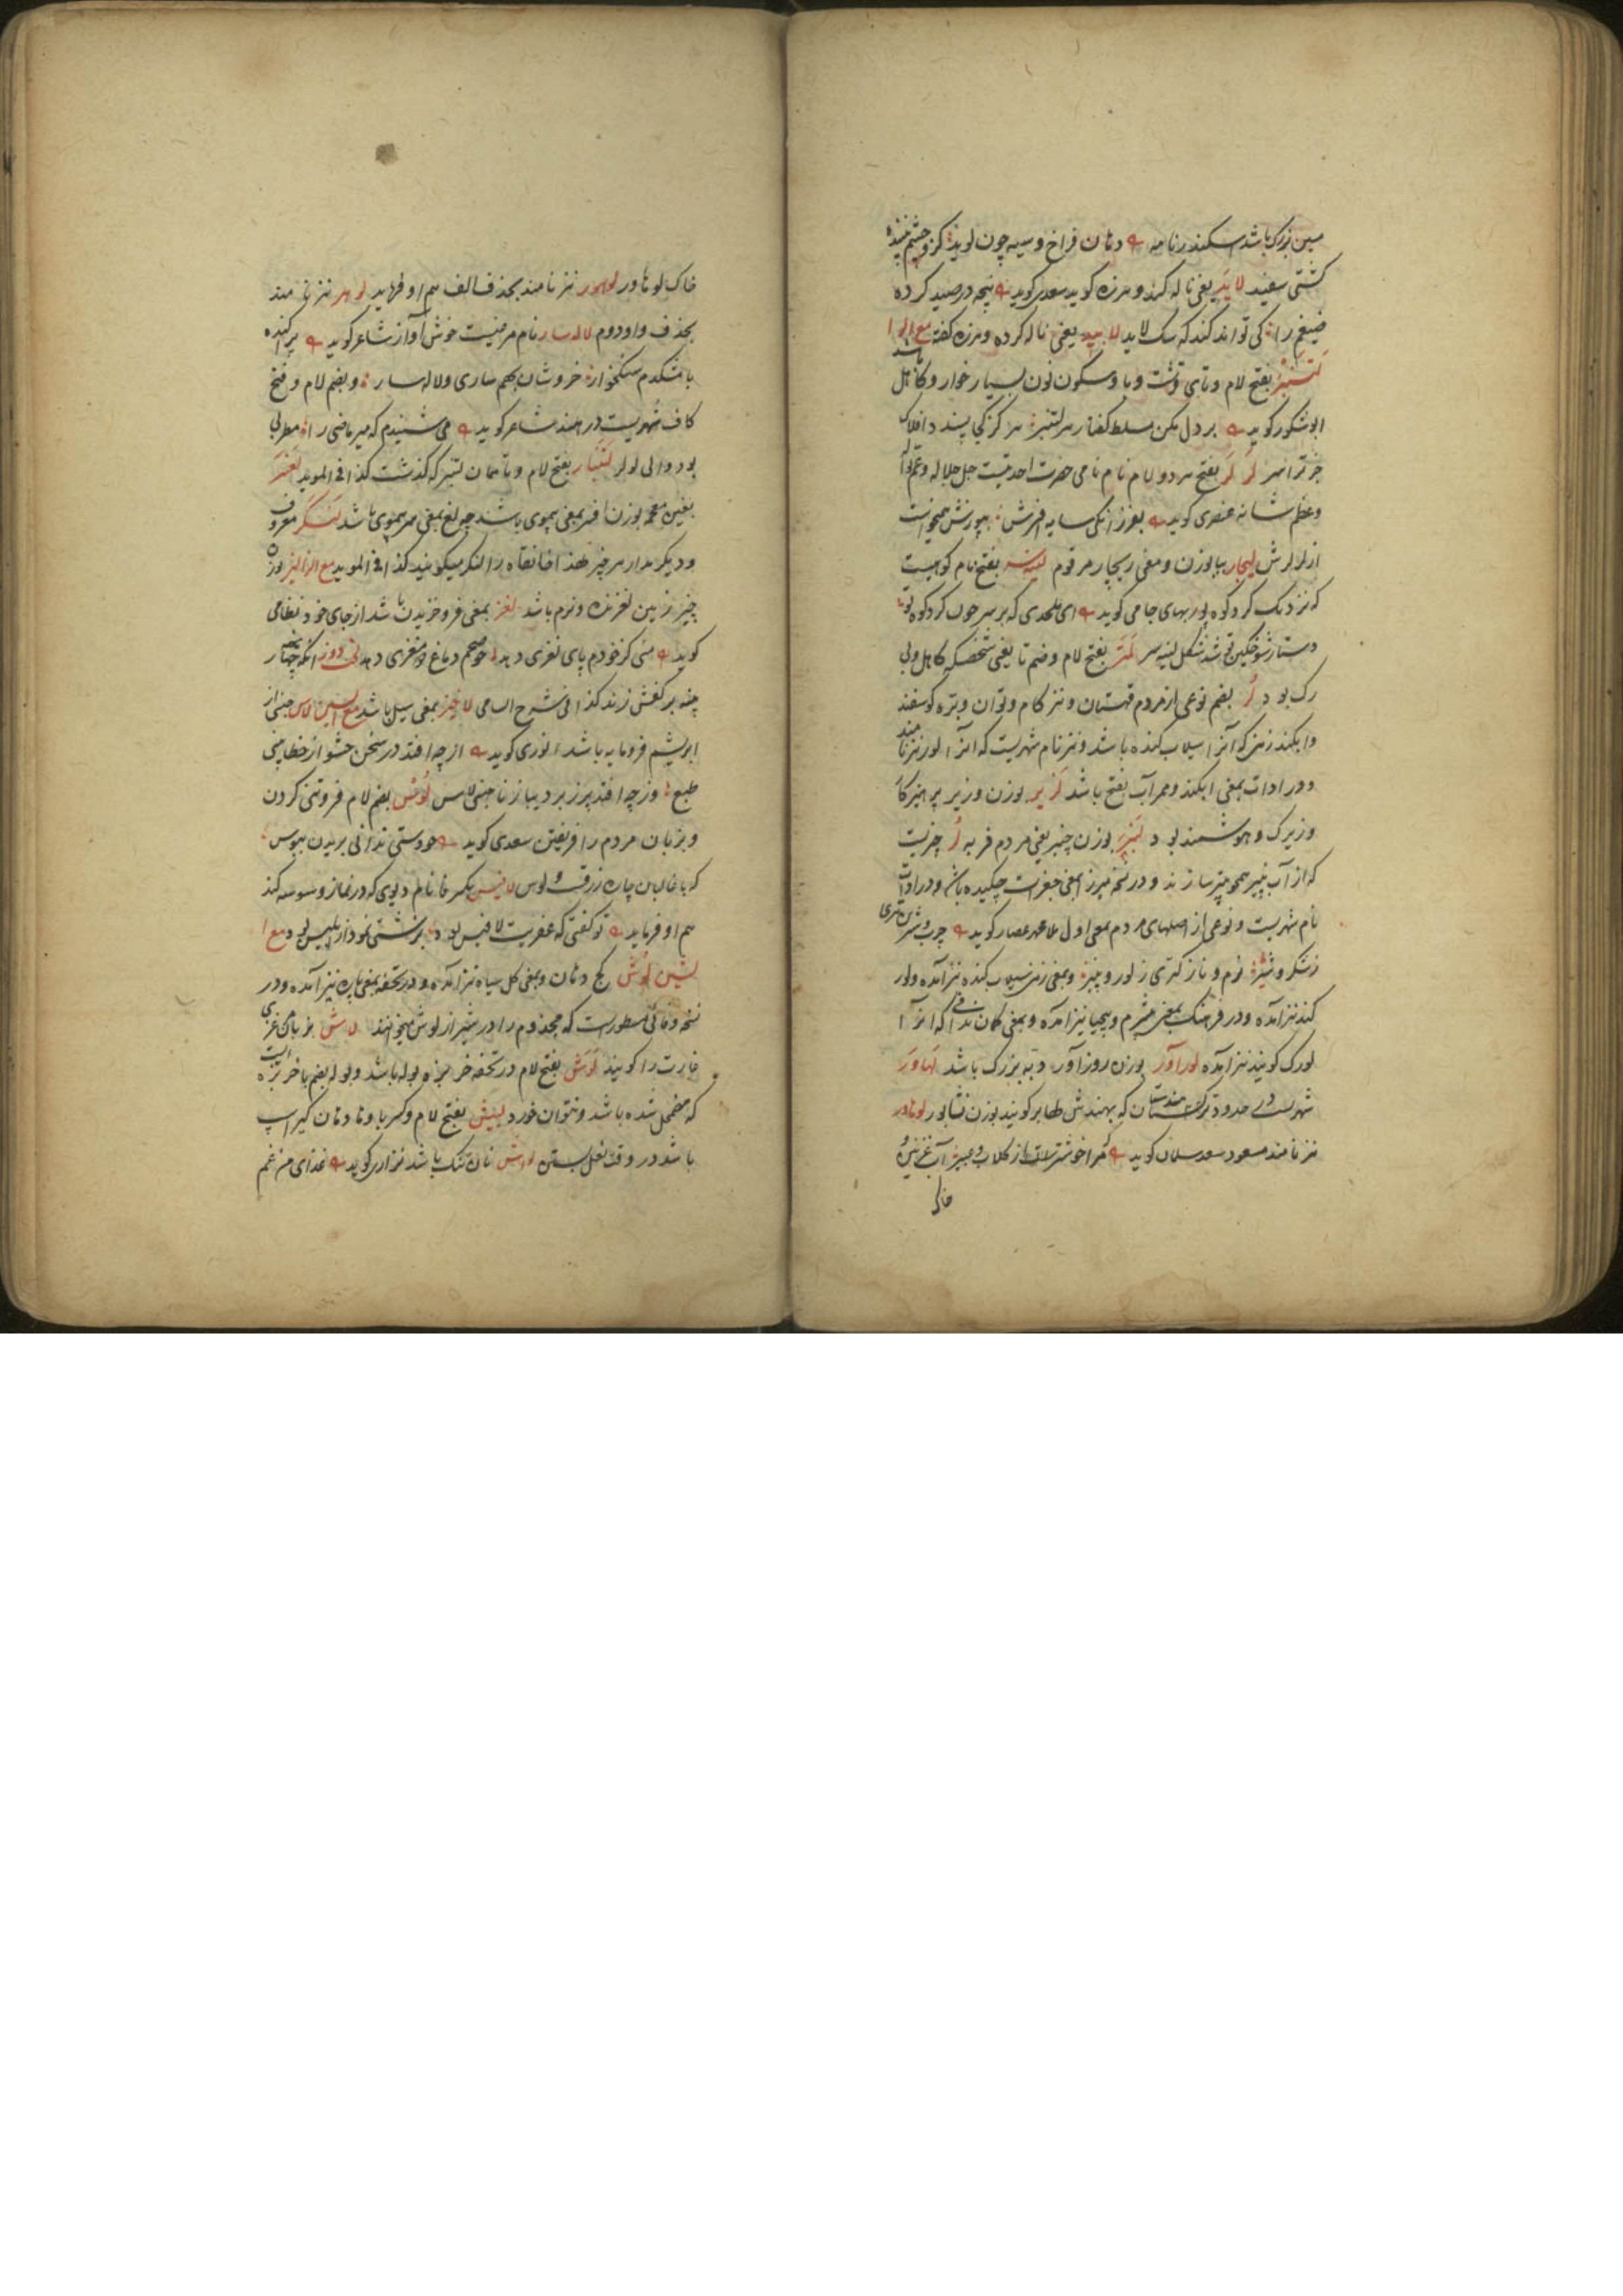 مسین بزرک باشد سکندرنامه دهان فراخ و سیه چون لوید کزو چشم بیننده
کشتی سفید لاید یعنی ناله کند و هرزه کوید سعدی کوید پنجه در صید کرده
ضیغم را کی تواند کند که سک لاید لایید یعنی ناله کرده و هرزه کفته مع الرا
لتنبر بفتح لام و تای قرشت و با و سکون نون بسیار خوار و کاهل باشد
ابوشکور کوید بر دل مکن مسلط کفتار هر لتنبر هرکز کی پسندد افلاک
جز ترا سر لر لر بفتح هر دو لام نام نامی حضرت احدیتست جل جلاله و عم نواله
و عظم شانه عنصری کوید
از لرلرش لیچار بیا بوزن و معنی ریچار مرقوم بفتح نام کوهیست
که نزدیک کرد کوه جامی کوید ای ملحدی که بر سر چون کرد کوه تو
لمتر بفتح لام و ضم تا یعنی شخصیکه کاهل و بی
رک بود لر بضم نوعی از مردم قهستان و نیز کام و توان و بره کوسفند
و ابکند زمین که آنرا سیلاب کنده باشد و نیز نام شهریست که آنرا لور نیز نامند
و در ادات بمعنی ابکند و ممر آب بفتح باشد لزیر بوزن وزیر پرهیزکار
و زیرک و هوشمند بود لنبر بوزن چنبر یعنی مردم فربه لر چیزیست
که از آب پنیر همچو پنیر سازند و در نسخه میرزا بمعنی جغرات چکیده باشد و در ادات
نام شهریست و نوعی از اصلهای مردم معنی اول ملا عصار کوید چرب و شیرین تری
ز شکر و شیر نرم و نازکتری ز لور و پنیر و بمعنی زمین سیلاب کنده نیز آمده و لور
کند نیز آمده و در فرهنک بمعنی بیشرم و بیحیا نیز آمده و بمعنی کمان ندافی که آنرا
لورک کویند نیز آمده لورآور بوزن روزآور دبه بزرک باشد لهاور
شهریست در حدود ترکستان هندستان که بهندش کویند بوزن نشابور لوهاور
نیز نامند مسعود سعد سلمان کوید مرا خوشتر است از کلاب و عبیر آب غزنین و
خاک
خاک لوهاور لوهور نیز نامند بحذف الف هم او فرماید لوهر نیز نامند
بحذف واو دوم لاله سار نام مرغیست خوش آواز شاعر کوید پرکنده
با مشکدم سنکخوار خروشان بهم ساری و لاله سار و بضم لام و فتح
کاف شهریست در هند شاعر کوید می شنیدم که میر ماضی را مطربی
بود والی لولر لتنبار بفتح لام و تا همان لتنبر که کذشت کذا فی الموید لغسر
بغین معجمه بوزن افسر بمعنی بیموی باشد چه لغ بمعنی سر بیموی باشد لنکر معروف
و دیکر مدار هر چیز لهذا خانقاه را لنکر میکویند کذا فی الموید مع الزا لیز بوزن
چیز زمین لغزنده و نرم باشد لغز بمعنی فروخزیدن باشد از جای خود نظامی
کوید منی کز خودم پای لغزی دهد خوی هم دماغ و مغزی دهد لخت دوز آنکه چهار بخیه
پینه بر کفش زند کذا فی شرح السامی لاخیز بمعنی سیل باشد مع السین لاس جنسی از
ابریشم فرومایه باشد انوری کوید از چه افتد در سخن حشو از خطا بینی
طبع وز چه افتد پرز بر دیبا ز ناجنسی لاس لوس بضم لام فروتنی کردن
و بزبان مردم را فریفتن سعدی کوید چو دستی ندانی بریدن ببوس
که با غالبان چاره زرقست و لوس لاقیس بکسر قا نام دیوی که در نماز وسوسه کند
هم او فرماید تو کفتی که عفریت لاقیس بود بزشتی نمودار بلیس بود مع ا
لشین لوش کج دهان و بمعنی کل سیاه نیز آمده و در تحفه بمعنی پاره نیز آمده و در
نسخه وفائی مسطورست که مجذوم را در شیراز لوش میخوانند لاش بزبان غزی
غارت را کویند لوش بفتح لام در تحفه خربزه بوله باشد و بوله بضم با خربزه ایست
که مضمحل شده باشد و نتوان خورد لبیش بفتح لام و کسر با و تا دهان کیر اسپ
باشد در وقت نعل بستن لواش نان تنک باشد نزاری کوید غذای من غم